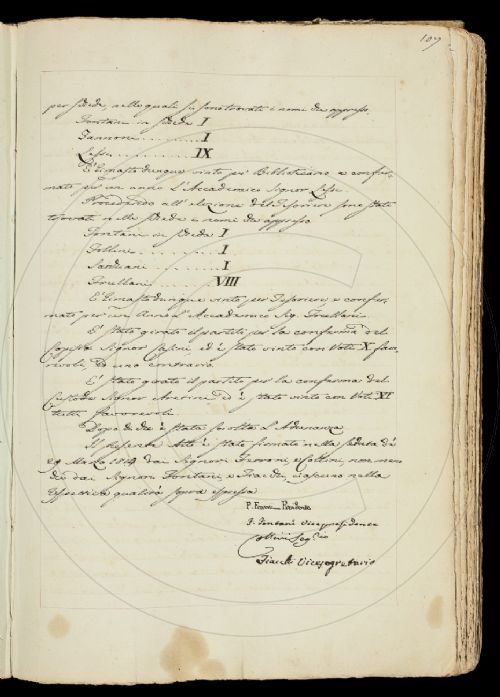 107
per schede, nelle quali si sono trovati i nomi da appresso.
Fontani in schede I
Zannoni . . . . . . . . . . I
Lessi . . . . . . . . . . . IX
È rimasto dunque vinto per Bibliotecario, e confermato per un anno l'Accademico Signor Lessi.
Procedendo all'elezione del Tesoriere sono stati
trovati nelle schede i nomi da appresso
Fontani in schede I
Follini . . . . . . . . I
Sarchiani . . . . . . I
Frullani . . . . . . . VIII
È rimasto dunque vinto per Tesoriere, e confermato per un Anno l'Accademico Sig. Frullani.
È stato girato il partito per la conferma del
Signor Casini, ed è stato vinto con Voti X favorevoli, ed uno contrario.
È stato girato il partito per la conferma del
Custode Signor ed è stato vinto con Voti XI
tutti favorevoli
Dopo di che è stata sciolta l'Adunanza.
Il presente Atto è stato firmato nella seduta de'
29 Marzo 1814 dai Signori Ferroni, e Collini, non meno
che dai Signori Fontani, e ciascuno nella
respettiva qualità sopra espressa
P. Ferroni Presidente
F. Fontani Vicepresidente
Collini Seg.rio
Vicesegretario